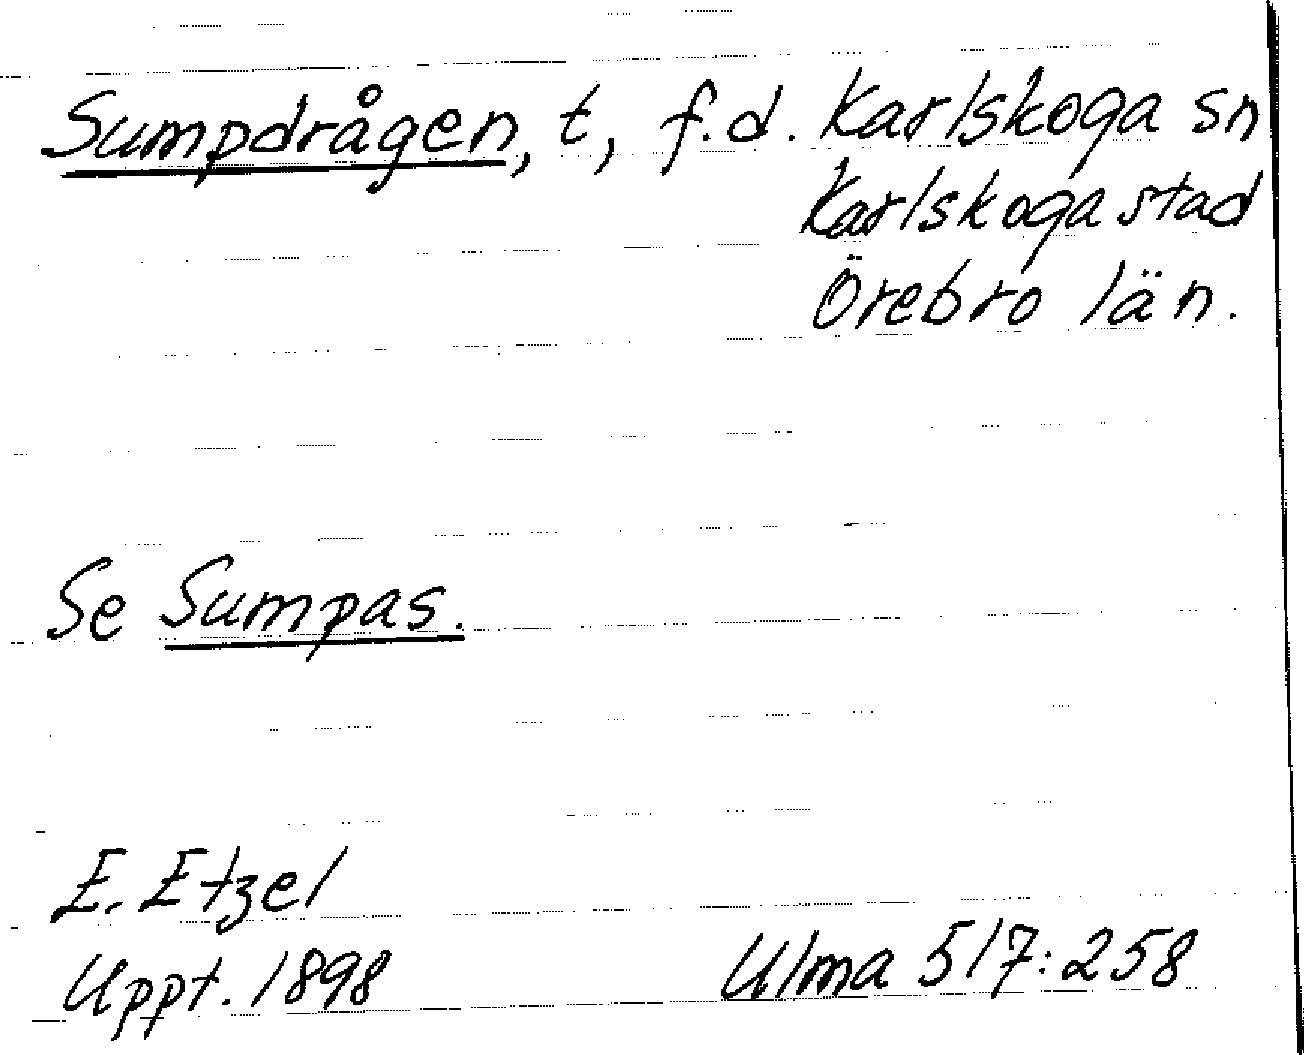 Sumpdrågen, t, f.d. Karlskoga sn
Karlskoga stad
Örebro län.
Se Sumpas.
E. Etzel
Uppt. 1898 Ulma 517:258